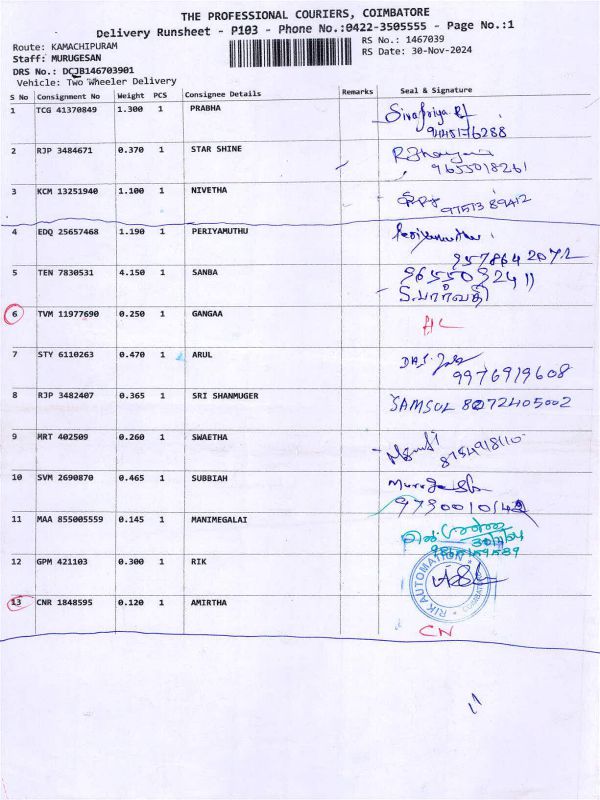 THE PROFESSIONAL COURIERS, COIMBATORE
Delivery Runsheet - P103 - Phone No.:0422-3505555 - Page No.:1
Route: KAMACHIPURAM RS No.: 1467039
Staff: MURUGESAN RS Date: 30-Nov-2024
DRS No.: DCJB146703901
Vehicle: Two Wheeler Delivery
S No Consignment No Weight PCS Consignee Details Remarks Seal & Signature
1 TCG 41370849 1.300 1 PRABHA Sivapriya
9445176288
2 RJP 3484671 0.370 1 STAR SHINE
9655018261
3 KCM 13251940 1.100 1 NIVETHA 97513 89412
4 EDQ 25657468 1.190 1 PERIYAMUTHU Periyamuthu
957864 2072
5 TEN 7830531 4.150 1 SANBA 9655092411
S.பார்வதி
6 TVM 11977690 0.250 1 GANGAA
7 STY 6110263 0.470 1 ARUL
9976919608
8 RJP 3482407 0.365 1 SRI SHANMUGER SAMSUL 8072405002
9 MRT 402509 0.260 1 SWAETHA 8754918110
10 SVM 2690870 0.465 1 SUBBIAH Murugesh
11 MAA 855005559 0.145 1 MANIMEGALAI
12 GPM 421103 0.300 1 RIK RIK AUTOMATION
13 CNR 1848595 0.120 1 AMIRTHA
CN